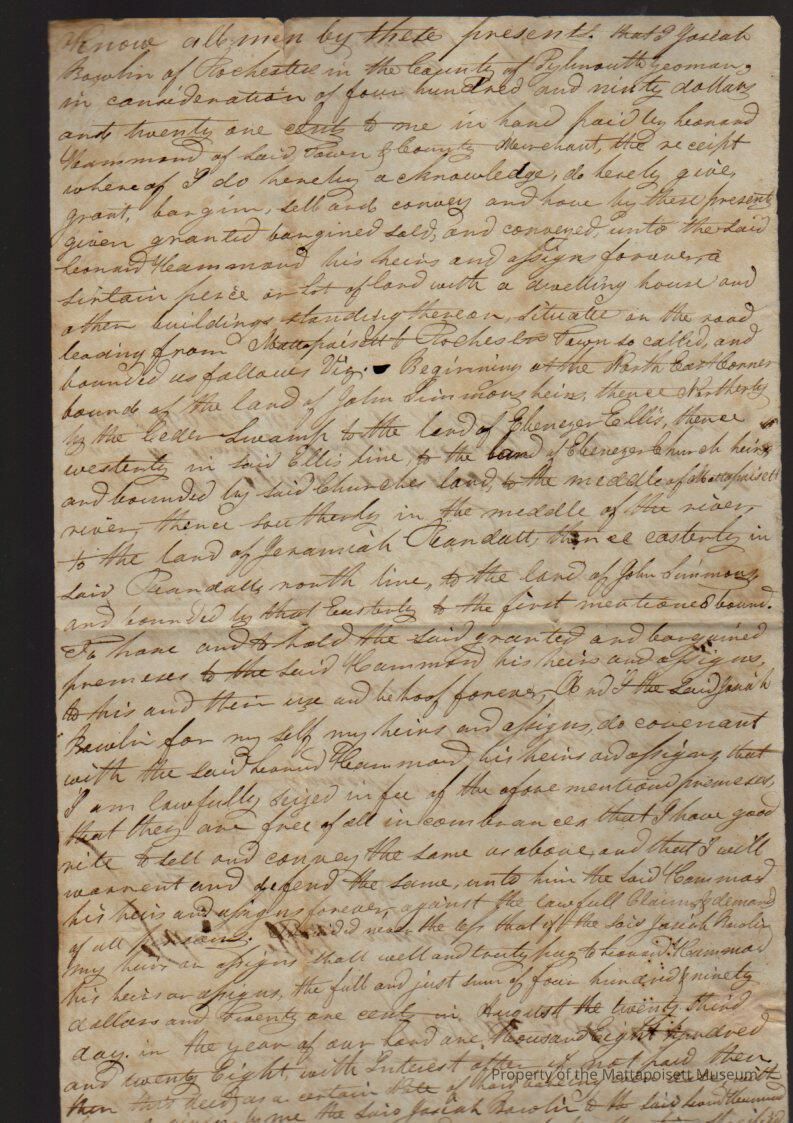 Know all men by these presents. that I Josiah
Bowlin of Rochester in the County of Plymouth yeoman,
in consideration of four hundred and ninty dollars
and twenty one cents to me in hand paid by Leonard
Hammond of said Town & County Merchant, the receipt
whereof I do hereby acknowledge, do hereby give,
grant, bargin, sell and convey and have by these presents
given granted bargined sold, and conveyed, unto the said
Leonard Hammond his heirs and assigns forever, a
sirtain peice or lot of land with a dwelling house and
other buildings standing thereon, situate on the road
leading from Mattapoisett to Rochester Town so called, and
bounded as fallows Viz. Beginning at the North East Corner
bounds of the land of John Simmons heirs, thence Northerly
by the Ceder Swamp to the land of Ebenezer Ellis, thence
westerly in said Ellis line, to the land of Ebenezer Church heirs
and bounded by said Churches land, to the meddle of Mattapoisett
river, thence southerly in the meddle of the river,
to the land of Jeramiah Randall, thence easterly in
said Randalls north line, to the land of John Simmons,
and bounded by that Easterly to the first mentioned bound.
To have and to hold the said granted and bargained
premeses to the said Hammond his heirs and assigns,
to his and their use and behoof forever, And I the said Josiah
Bowlin for my self my heirs and assigns, do covenant
with the said Leonard Hammond, his heirs and assigns that
I am lawfully seized in fee of the afore mentioned premeses,
that they are free of all incombrances that I have good
rite to sell and convey the same as above, and that I will
warrent and defend the same, unto him the said Hammond
his heirs and assigns forever, against the lawfull Claims & demand
of all persons. never the less that if the said Josiah Bowlin
my heirs or assigns shall well and truly pay to Leonard Hammond
his heirs or assigns, the full and just sum of four hundred & ninety
dollars and twenty one cents in August the twenty third
day. in the year of our Lord one thousand Eight hundred
and twenty Eight with Interest after if not paid then
then this deed, as a certain Note of hand
by me the said Josiah Bowlin to the said Leonard Hammond
Property of the Mattapoisett Museum